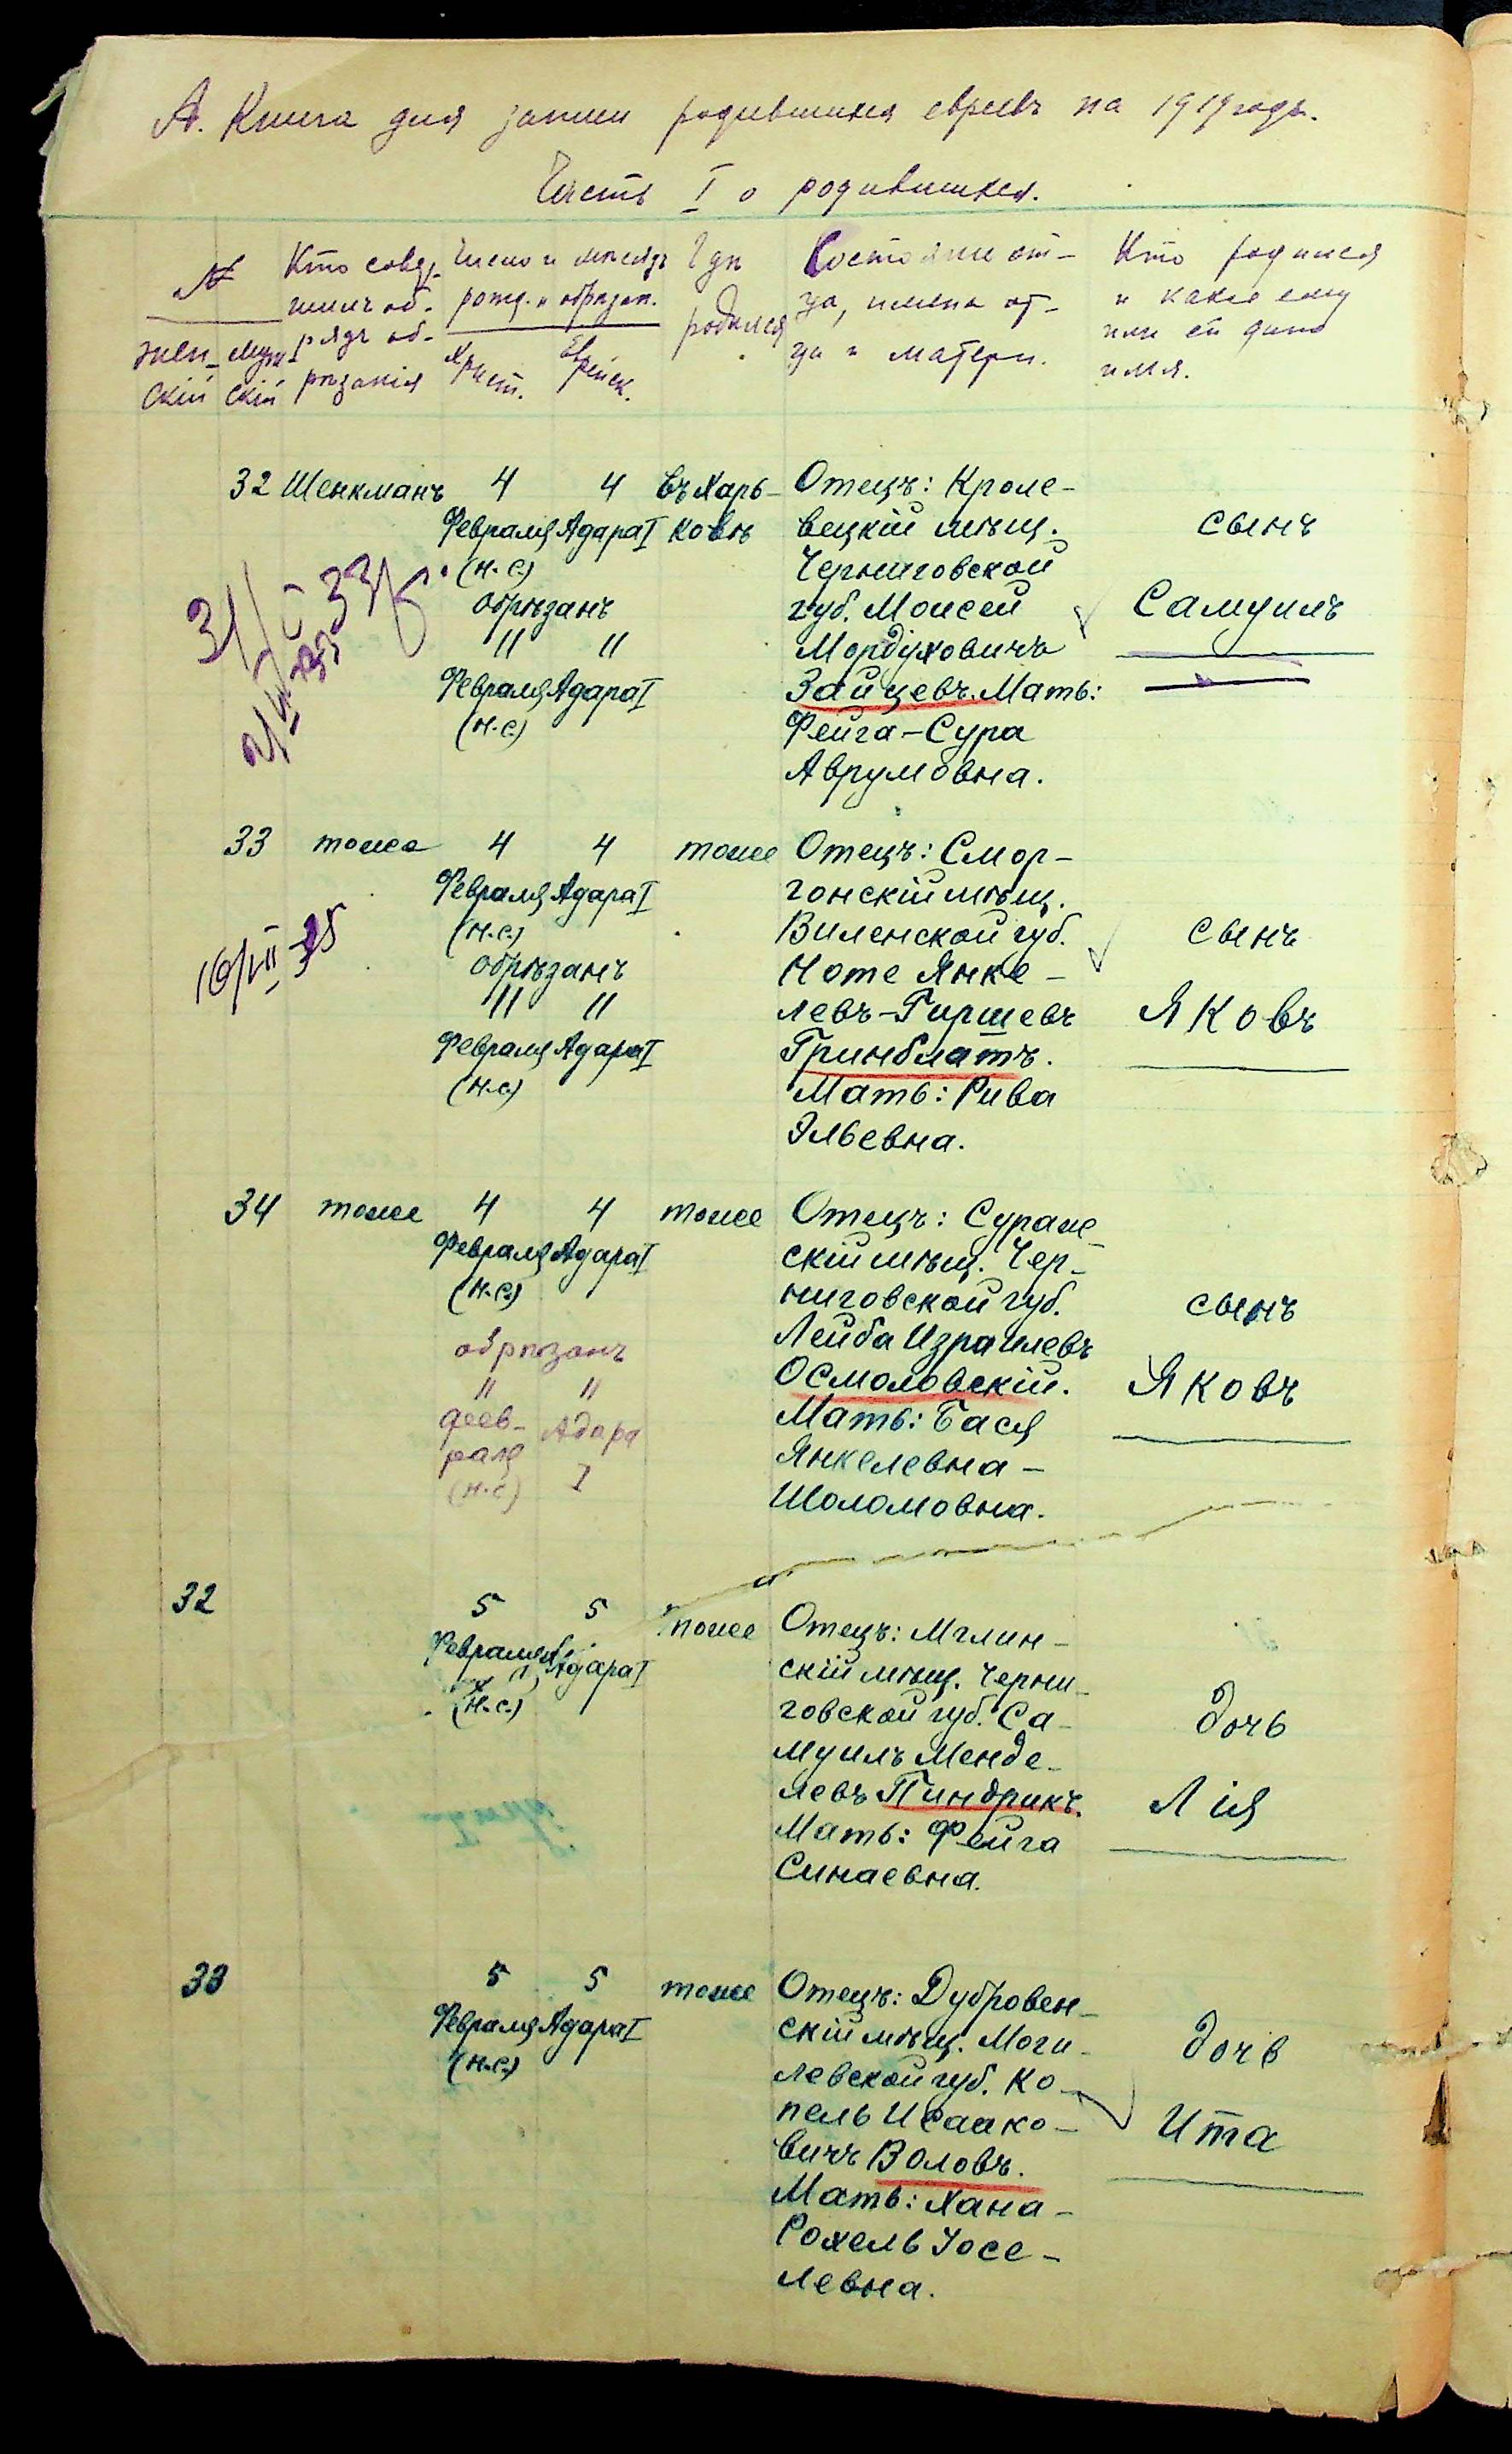 А. Книга для записи родившихся евреевъ на 1919 годъ.
Часть I о родившихся.
№
женскій
мужскій
Кто совер-
шилъ об-
рядъ об-
рѣзанія
Число и мѣсяцъ
рожд. и обрѣзан.
Христ.
Еврейск.
Гдѣ
родился
Состояніе от-
ца, имена от-
ца и матери.
Кто родился
и какое ему
или ей дано
имя.
32 Шенкманъ 4 4 Въ Харь-
ковѣ
Февраля Адара I
(н.с.)
обрѣзанъ
11 11
Февраля Адара I
(н.с.)
Отецъ: Кроле-
вецкій мѣщ.
Черниговской
губ. Моисей
Мордуховичъ
Зайцевъ. Мать:
Фейга-Сура
Аврумовна.
сынъ
Самуилъ
33 тоже 4 4 тоже
Февраля Адара I
(н.с.)
обрѣзанъ
11 11
Февраля Адара I
(н.с.)
Отецъ: Смор-
гонскій мѣщ.
Виленской губ.
Ноте Янке-
левъ-Гиршевъ
Гринблатъ.
Мать: Рива
Эльевна.
сынъ
Яковъ
34 тоже 4 4 тоже
Февраля Адара I
(н.с.)
обрѣзанъ
11 11
фев- Адара
раля I
(н.с)
Отецъ: Сураж-
скій мѣщ. Чер-
ниговской губ.
Лейба Израилевъ
Осмоловскій.
Мать: Бася
Янкелевна-
Шоломовна.
сынъ
Яковъ
32 5 5 тоже
Февраля Адара I
(н.с.)
Отецъ: Мглин-
скій мѣщ. Черни-
говской губ. Са-
муилъ Менде-
левъ Пиндрикъ.
Мать: Фейга
Синаевна.
дочь
Лія
33 5 5 тоже
Февраля Адара I
(н.с.)
Отецъ: Дубровен-
скій мѣщ. Моги-
левской губ. Ко-
пель Исаако-
вичъ Воловъ.
Мать: Хана-
Рохель Іосе-
левна.
дочь
Ита